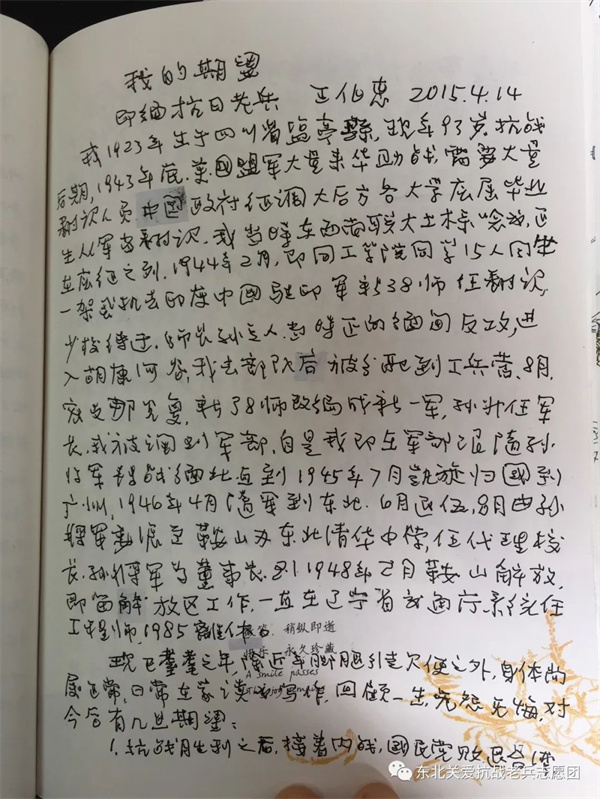 我的期望
印缅抗日老兵 王伯惠 2015.4.14
我1923年生于四川省盐亭县,现年93岁.抗战
后期,1943年底,美国盟军大量来华助战,需要大量
翻译人员.中国政府征调大后方各大学应届毕业
生从军当翻译.我当时在西南联大土木系念书,正
在应征之列,1944年2月,即同工学院同学15人同坐
一架飞机去印度中国驻印军新38师任翻译,
少校待遇.师长孙立人.当时正向缅甸反攻,进
入胡康河谷,我去部队后被分配到工兵营.8月,
密支那光复,新38师改编成新一军,孙升任军
长,我被调到军部,自是我即在军部跟随孙
将军转战缅北直到1945年7月凯旋归国到
广州,1946年4月随军到东北.6月退伍,8月由孙
将军派至鞍山办东北清华中学,任代理校
长.孙将军为董事长.到1948年2月鞍山解放,
即留解放区工作,一直在辽宁省交通厅系统任
工程师,1985离休.
稍纵即逝
永久珍藏
A smile passes
现已耄耋之年,除近年脚腿引走欠便之外,身体尚
属正常,日常在家读书写作.回顾一生,无怨无悔.对
今后有几点期望:
1.抗战胜利之后,接着内战,国民党败退台湾
东北关爱抗战老兵志愿团